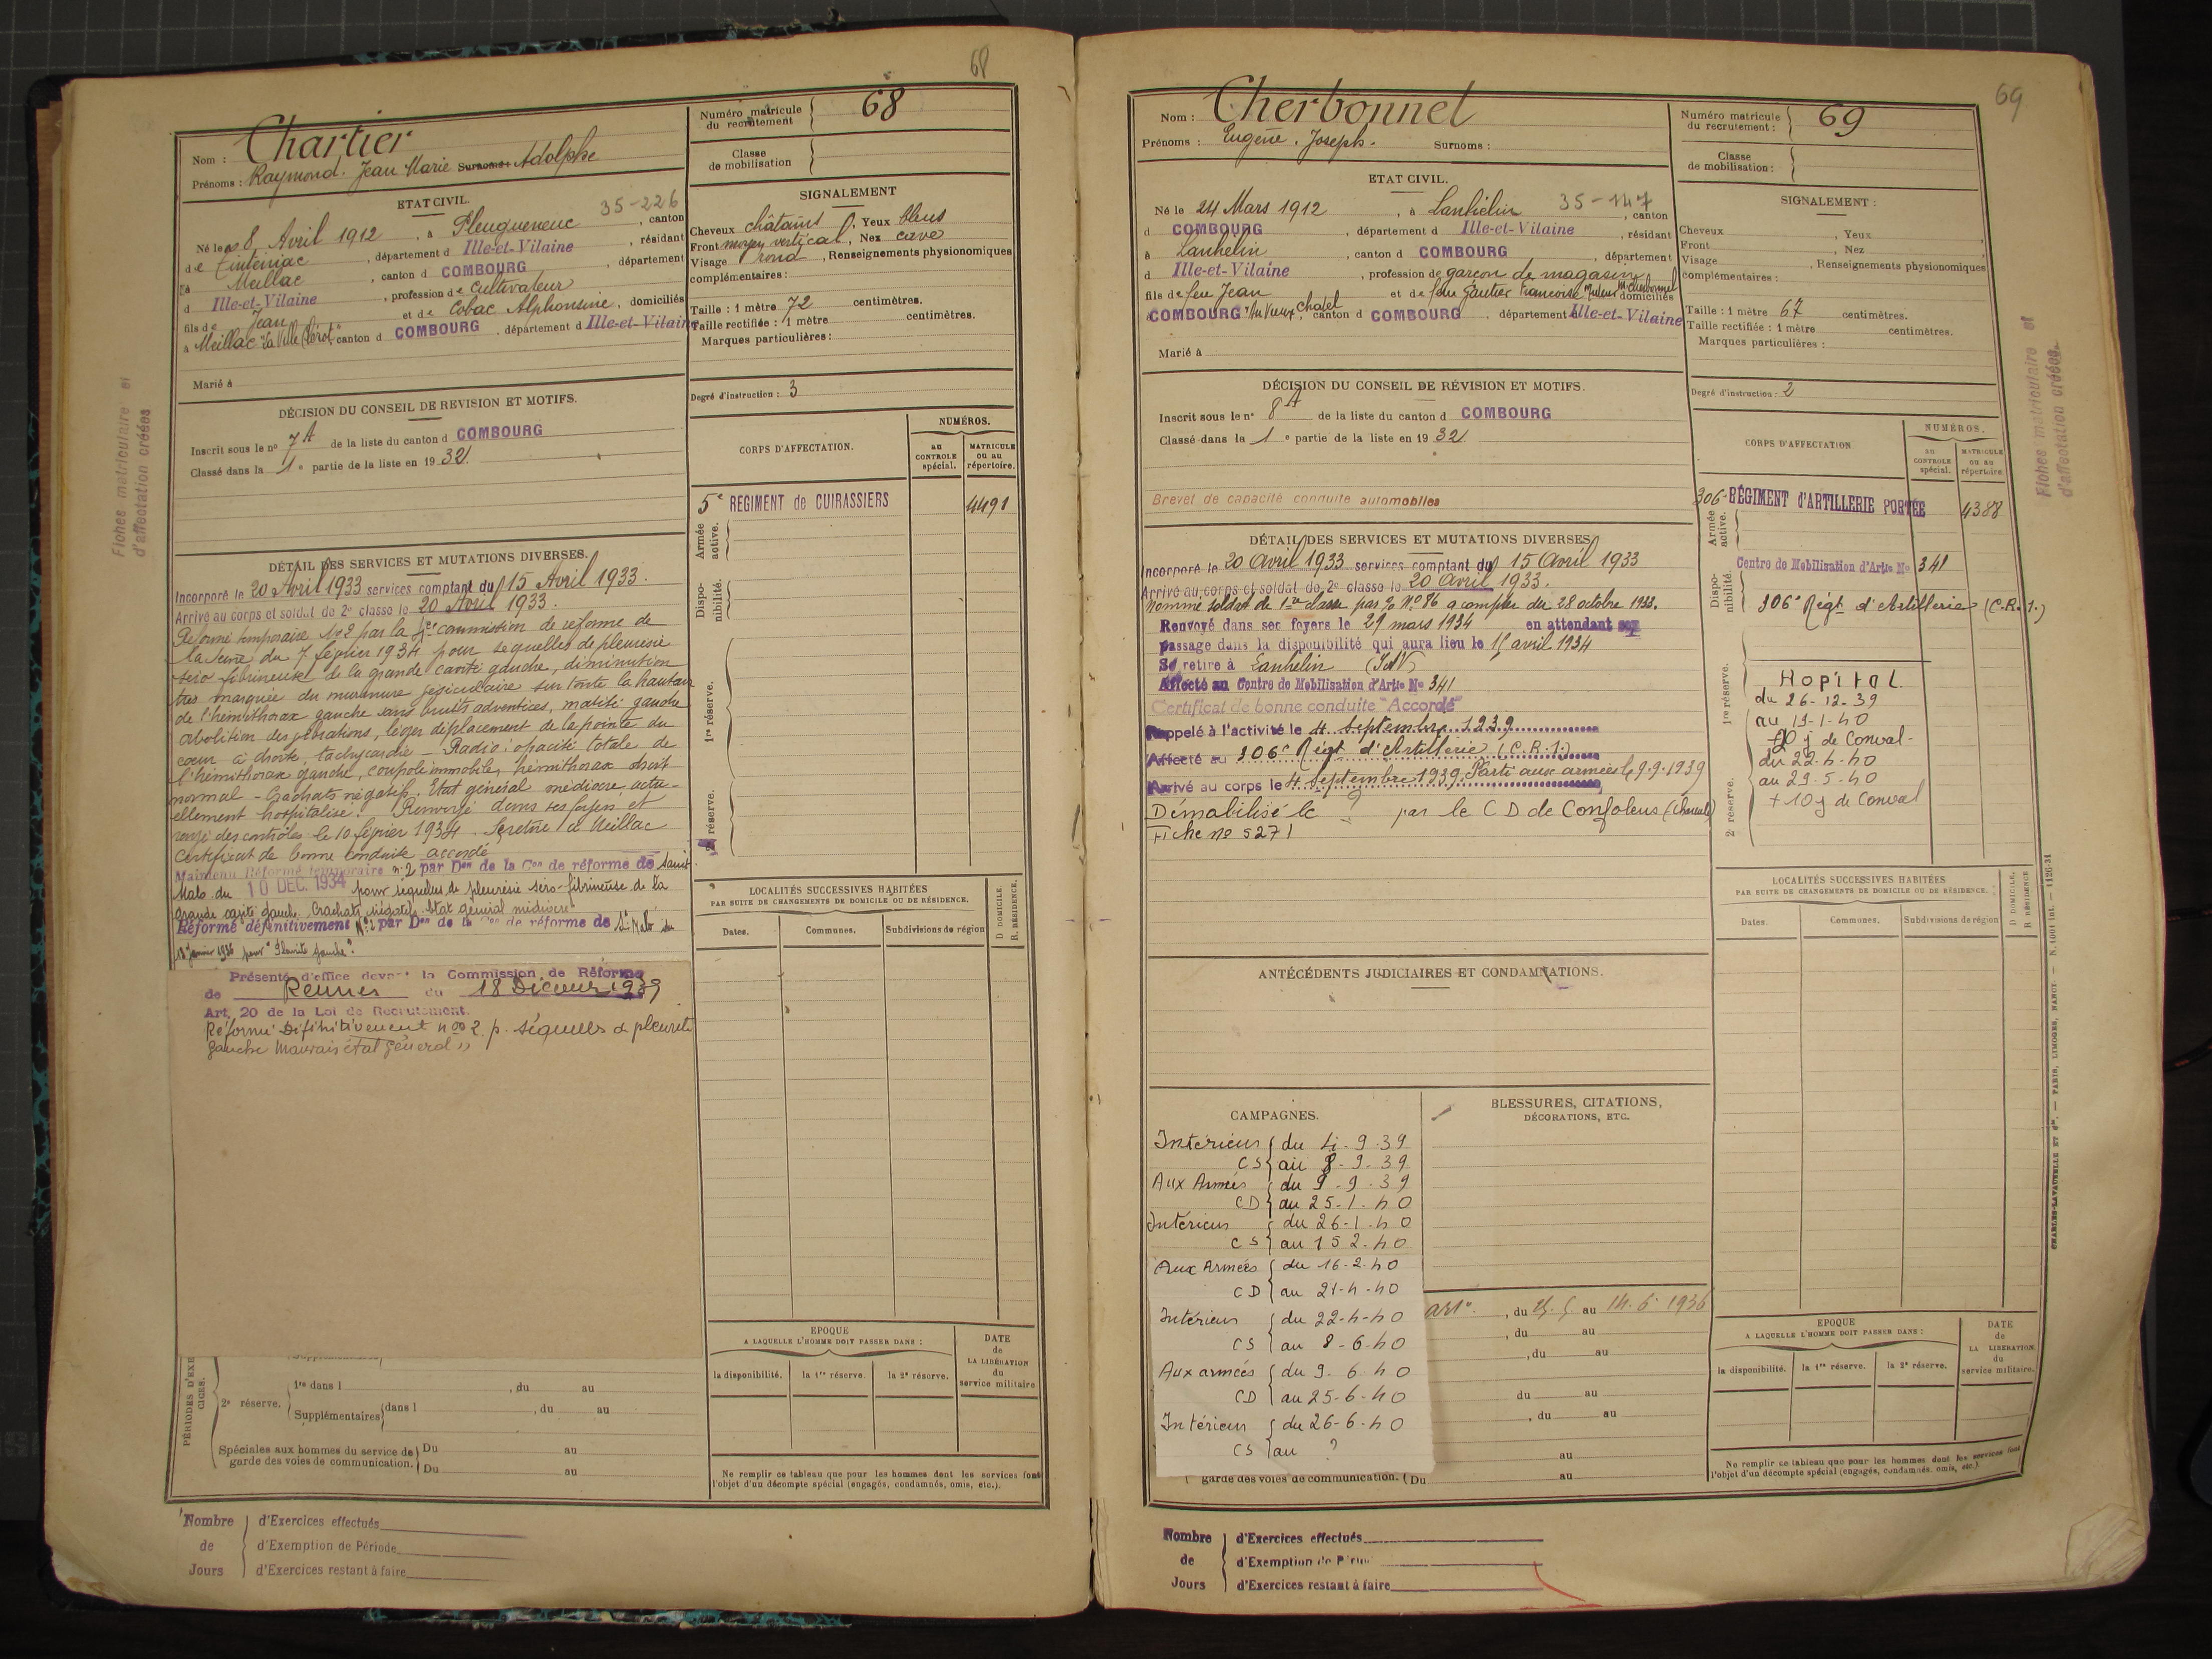 68
Nom : Chartier
Prénoms : Raymond. Jean Marie Surnoms: Adolphe
Numéro matricule du recrutement 68
Classe de mobilisation
ETAT CIVIL.
35-226
Né le 8 Avril 1912, à Pleugueneuc, canton
de Tinténiac, département d Ille-et-Vilaine, résidant
à Meillac, canton d COMBOURG, département
d Ille-et-Vilaine, profession de Cultivateur
fils de Jean et de Cobac Alphonsine, domiciliés
à Meillac "La Ville canton d COMBOURG, département d Ille-et-Vilaine
Marié à
SIGNALEMENT
Cheveux châtains, Yeux bleus
Front moyen vertical, Nez cave
Visage rond, Renseignements physionomiques
complémentaires :
Taille : 1 mètre 72 centimètres.
Taille rectifiée : 1 mètre centimètres.
Marques particulières :
Degré d'instruction : 3
DÉCISION DU CONSEIL DE REVISION ET MOTIFS.
Inscrit sous le n° 7A de la liste du canton d COMBOURG
Classé dans la 1e partie de la liste en 1932.
Fiches matriculaire et
d'affectation créées
CORPS D'AFFECTATION.
NUMÉROS.
au CONTROLE spécial.
MATRICULE ou au répertoire.
5e REGIMENT de CUIRASSIERS 4491
Armée active.
Dispo-nibilité.
1re réserve.
2e réserve.
DÉTAIL DES SERVICES ET MUTATIONS DIVERSES.
Incorporé le 20 Avril 1933 services comptant du 15 Avril 1933.
Arrivé au corps et soldat de 2e classe le 20 Avril 1933.
Réformé temporaire N°2 par la 1ère commission de réforme de
la Seine du 7 février 1934 pour sequelles de pleuresie
séro fibrineuse de la grande cavité gauche, diminution
tres marquée du murmure vésiculaire sur toute la hauteur
de l'hémithorax gauche sans bruits adventices, matité gauche
abolition des vibrations, léger déplacement de la pointe du
coeur à droite, tachycardie – Radio : opacité totale de
l'hémithorax gauche, coupole immobile, hémithorax droit
normal – Crachats négatifs. Etat général médiocre, actu-
ellement hospitalisé. Renvoyé dans ses foyers et
rayé des contrôles le 10 février 1934. Se retire à Meillac
Certificat de bonne conduite accordé
Maintenu Réformé temporaire n°2 par Don de la Con de réforme de Saint
Malo du 10 DEC. 1934 pour séquelles de pleurésie séro-fibrineuse de la
grande cavité gauche. Crachats négatifs. Etat général médiocre
Réformé définitivement N°2 par Don de la Con de réforme de St Malo du
janvier 1936 pour gauche"
Présenté d'office devant la Commission de Réforme
de Rennes du 18 Décembre 1939
Art. 20 de la Loi de Recrutement.
Réformé Définitivement n° 2 p. séquelles de pleurite
gauche Mauvais état général "
LOCALITÉS SUCCESSIVES HABITÉES
PAR SUITE DE CHANGEMENTS DE DOMICILE OU DE RÉSIDENCE.
D. DOMICILE. R. RÉSIDENCE.
Dates. Communes. Subdivisions de région
EPOQUE
A LAQUELLE L'HOMME DOIT PASSER DANS :
la disponibilité. la 1re réserve. la 2e réserve.
DATE de LA LIBÉRATION du service militaire
Ne remplir ce tableau que pour les hommes dont les services font
l'objet d'un décompte spécial (engagés, condamnés, omis, etc.).
PÉRIODES D'EXERCICES.
2e réserve.
1re dans l , du au
Supplémentaires dans l , du au
Spéciales aux hommes du service de
garde des voies de communication.
Du au
Du au
Nombre de Jours
d'Exercices effectués
d'Exemption de Période
d'Exercices restant à faire
69
Nom : Cherbonnel
Prénoms : Eugène. Joseph. Surnoms :
Numéro matricule du recrutement : 69
Classe de mobilisation :
ETAT CIVIL.
35-147
Né le 24 Mars 1912, à Lanhélin, canton
d COMBOURG, département d Ille-et-Vilaine, résidant
à Lanhelin, canton d COMBOURG, département
d Ille-et-Vilaine, profession de garçon de magasin
fils de feu Jean et de feue Gautier Françoise Tuteur Mr Cherbonnel domiciliés
COMBOURG "Au Vieux Chatel, canton d COMBOURG, département d Ille-et-Vilaine
Marié à
SIGNALEMENT :
Cheveux , Yeux
Front , Nez
Visage , Renseignements physionomiques
complémentaires :
Taille : 1 mètre 67 centimètres.
Taille rectifiée : 1 mètre centimètres.
Marques particulières :
Degré d'instruction : 2
DÉCISION DU CONSEIL DE RÉVISION ET MOTIFS.
Inscrit sous le n° 8A de la liste du canton d COMBOURG
Classé dans la 1e partie de la liste en 1932.
Brevet de capacité conduite automobiles
Fiches matriculaire et
d'affectation créées
CORPS D'AFFECTATION
NUMÉROS.
au CONTROLE spécial.
MATRICULE ou au répertoire.
306e RÉGIMENT d'ARTILLERIE PORTÉE 4388
Centre de Mobilisation d'Artie N° 341
306e Régt d'Artillerie (C.R.1.)
Armée active.
Dispo-nibilité.
1re réserve.
2e réserve.
Hopital.
du 26-12-39
au 19-1-40
+20 j de Conval-
du 22-4-40
au 29-5-40
+ 10 j de Conval
DÉTAIL DES SERVICES ET MUTATIONS DIVERSES
Incorporé le 20 Avril 1933 services comptant du 15 Avril 1933
Arrivé au corps et soldat de 2e classe le 20 Avril 1933.
Nommé soldat de 1ère classe par % N°86 a compter du 28 octobre 1933.
Renvoyé dans ses foyers le 29 mars 1934 en attendant son
passage dans la disponibilité qui aura lieu le 15 avril 1934
Se retire à Lanhélin (I&V)
Affecté au Centre de Mobilisation d'Artie N° 341
Certificat de bonne conduite "Accordé"
Rappelé à l'activité le 4 Septembre 1939
Affecté au 306e Régt d'Artillerie (C.R.1.)
Arrivé au corps le 4 Septembre 1939. Parti aux armées le 9.9.1939
Démobilisé le ? par le C D de Confolens (Charente)
Fiche n° 5271
ANTÉCÉDENTS JUDICIAIRES ET CONDAMNATIONS.
CAMPAGNES.
Intérieur du 4-9-39
CS au 8-9-39
Aux Armées du 9-9-39
CD au 25-1-40
Intérieur du 26-1-40
CS au 15 2-40
Aux Armées du 16-2-40
CD au 21-4-40
Intérieur du 22-4-40
CS au 8-6-40
Aux armées du 9-6-40
CD au 25-6-40
Intérieur du 26-6-40
CS au ?
BLESSURES, CITATIONS,
DÉCORATIONS, ETC.
artie , du 25.5. au 14.6 1936
, du au
, du au
du au
, du au
au
garde des voies de communication. Du au
LOCALITÉS SUCCESSIVES HABITÉES
PAR SUITE DE CHANGEMENTS DE DOMICILE OU DE RÉSIDENCE.
D. DOMICILE. R. RÉSIDENCE
Dates. Communes. Subdivisions de région
EPOQUE
A LAQUELLE L'HOMME DOIT PASSER DANS :
la disponibilité. la 1re réserve. la 2e réserve.
DATE de LA LIBERATION du service militaire.
Ne remplir ce tableau que pour les hommes dont les services font
l'objet d'un décompte spécial (engagés, condamnés, omis, etc.)
CHARLES-LAVAUZELLE ET Cie. — PARIS, LIMOGES, NANCY — N. 1001 int. — 1126-31
Nombre de Jours
d'Exercices effectués
d'Exemption de Période
d'Exercices restant à faire